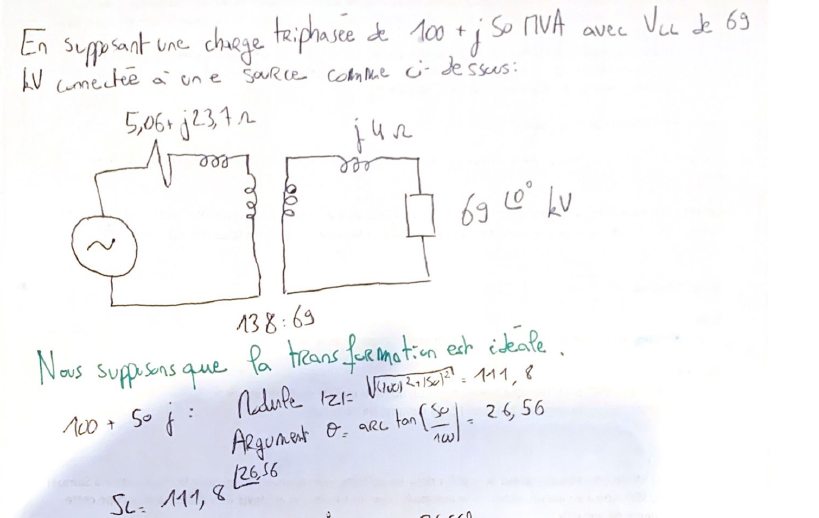 En supposant une charge triphasée de 100 + j 50 MVA avec VLL de 69
kV connectée à une source comme ci-dessus:
5,06 + j23,7 Ω
j 4 Ω
~
69 ∠0° kV
138:69
Nous supposons que la transformation est idéale.
100 + 50 j : Module |Z| = √(100)²+(50)² = 111,8
Argument θ = arc tan(50/100) = 26,56
SL = 111,8 ∠26,56